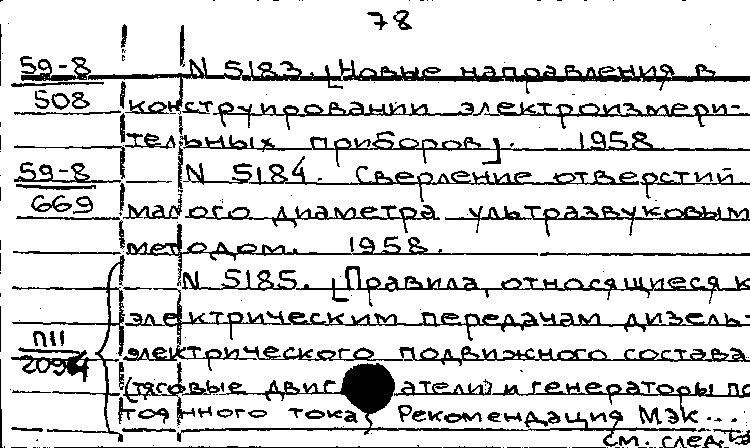 78
59-8 N 5183. [Новые направления в
508 конструировании электроизмери-
тельных приборов]. 1958
59-8 N 5184. Сверление отверстий
669 малого диаметра ультразвуковым
методом. 1958.
N 5185. [Правила, относящиеся к
электрическим передачам дизель-
П11 электрического подвижного состава
(тяговые двигатели и генераторы пос
тоянного тока) Рекомендация МЭК...
см. след.